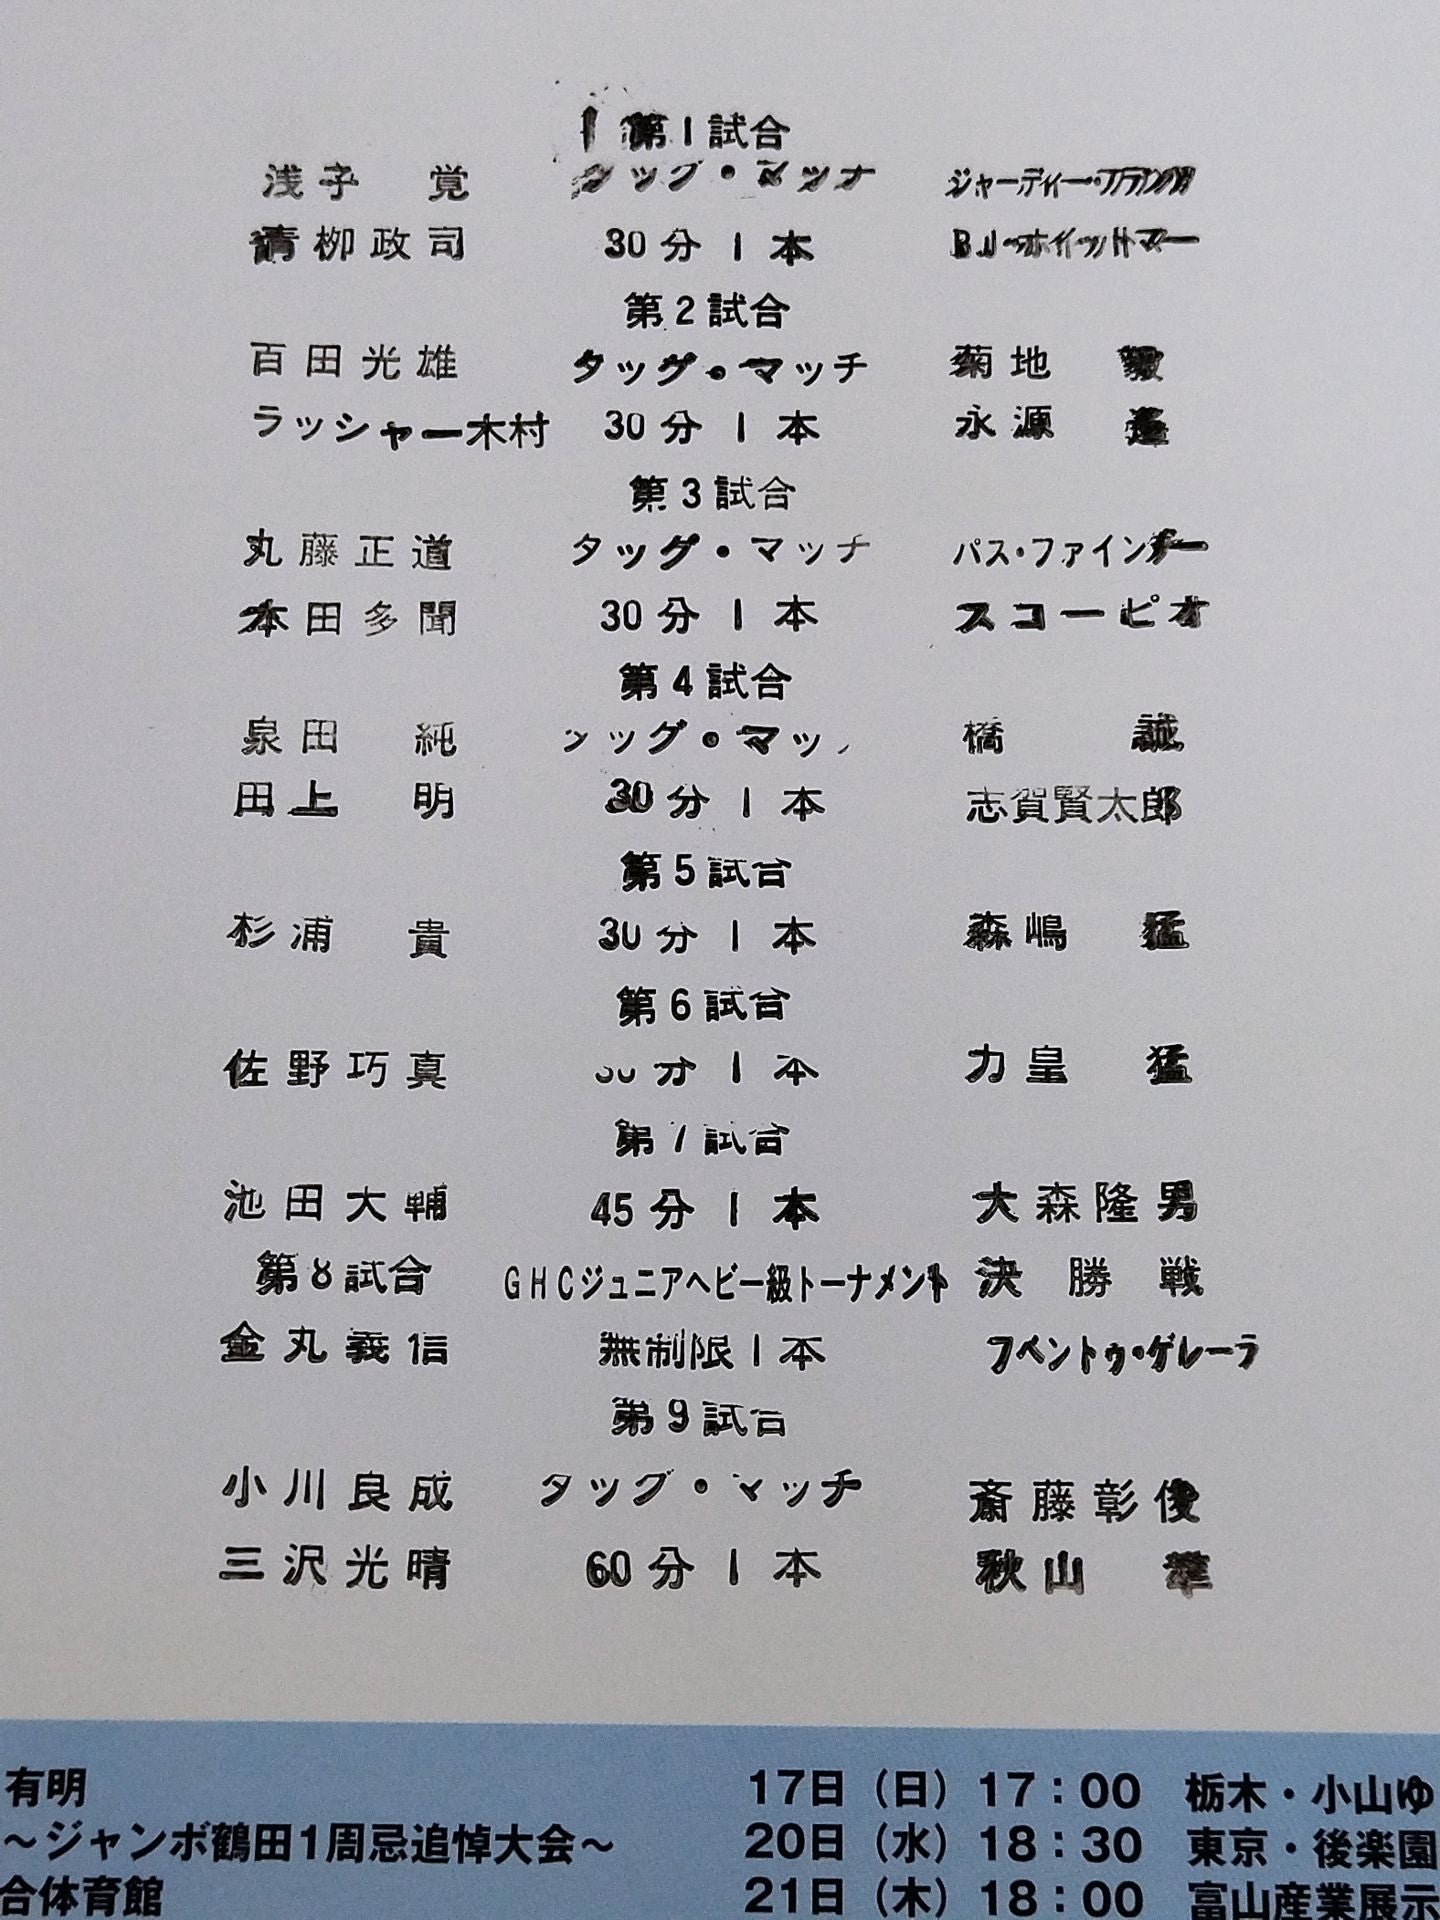 第1試合
浅子 覚 タッグ・マッチ
青柳政司 30分1本 BJ・ホイットマー
第2試合
百田光雄 タッグ・マッチ 菊地 毅
ラッシャー木村 30分1本 永源 遙
第3試合
丸藤正道 タッグ・マッチ パス・ファインダー
本田多聞 30分1本 スコーピオ
第4試合
泉田 純 タッグ・マッチ 橋 誠
田上 明 30分1本 志賀賢太郎
第5試合
杉浦 貴 30分1本 森嶋 猛
第6試合
佐野巧真 30分1本 力皇 猛
第7試合
池田大輔 45分1本 大森隆男
第8試合 GHCジュニアヘビー級トーナメント 決勝戦
金丸義信 無制限1本 フベントゥ・ゲレーラ
第9試合
小川良成 タッグ・マッチ 斎藤彰俊
三沢光晴 60分1本 秋山 準
有明 17日(日)17:00 栃木・小山ゆ
〜ジャンボ鶴田1周忌追悼大会〜 20日(水)18:30 東京・後楽園
合体育館 21日(木)18:00 富山産業展示